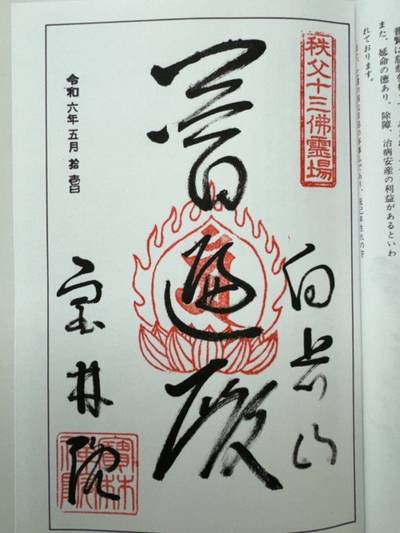 また、延命の徳あり、除障、治病安産の利益があるといわ
れております。
秩父十三佛靈場
向岳山
普遍殿
令和六年五月拾壹日
宝林院